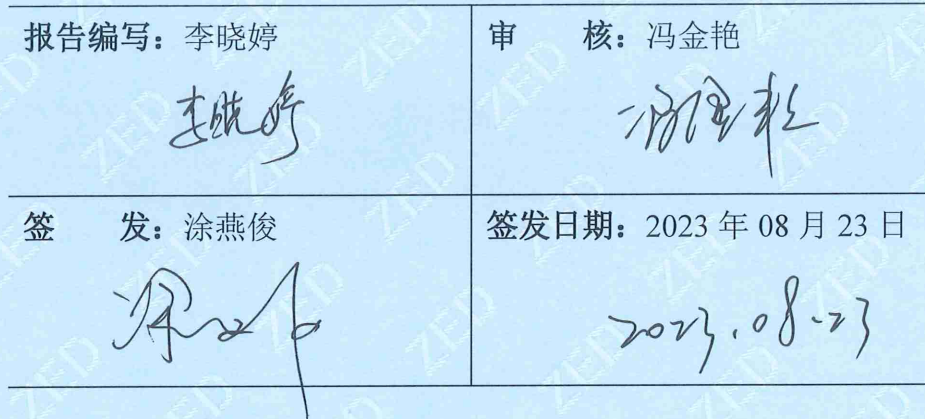 报告编写：李晓婷
审 核：冯金艳
李晓婷
冯金艳
签 发：涂燕俊
签发日期：2023 年 08 月 23 日
2023.08.23
ZED